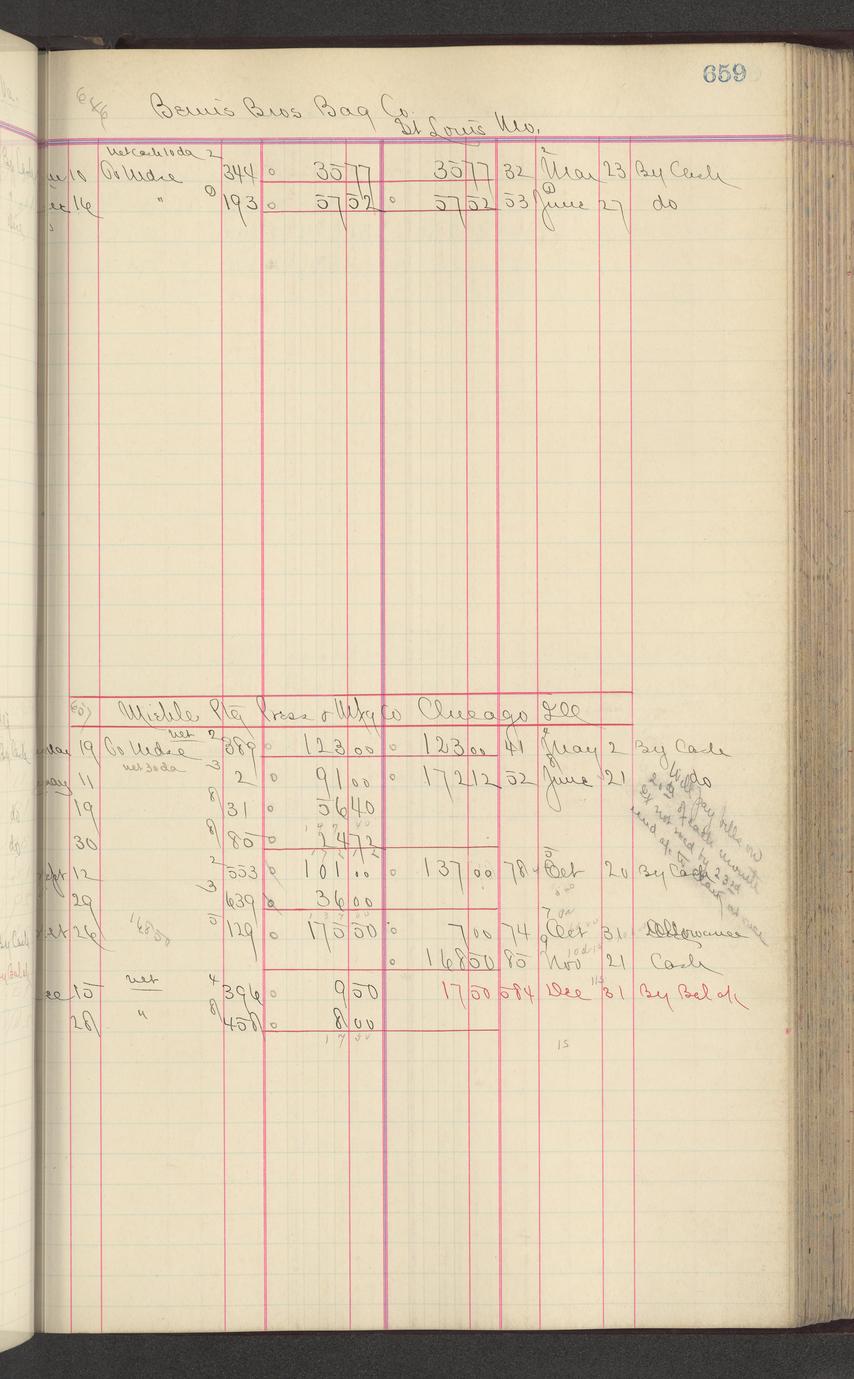 659
646 Bemis Bros Bag Co.
St Louis Mo.
net cash 10 da 2
10 To Mdse 344 35 77 35 77 32 Mar 23 By Cash
16 " 193 57 52 57 52 53 June 27 do
Miehle Ptg Press & Mfg Co Chicago Ill
net 2
19 To Mdse 389 123 00 123 00 41 May 2 By Cash
net 30 da 3
11 2 91 00 172 12 52 June 21 do
19 8 31 56 40
30 8 85 24 72
Will pay bills on
20th of each month
if not recd by 23rd
send at once
Sept 12 2 553 101 00 137 00 78 Oct 20 By Cash
29 3 639 36 00
1 3 7 00
26 168 50 5 129 175 50 7 00 74 Oct 31 Allowance
168 50 85 Nov 21 Cash
15 net 4 396 9 50 17 50 584 Dec 31 By Bal
28 " 8 458 8 00
1 7 50
15